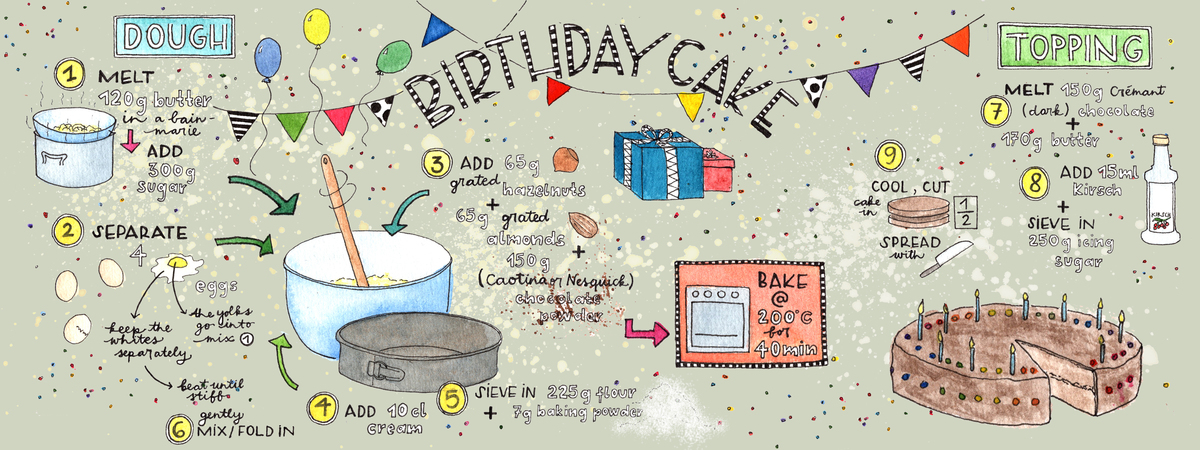 BIRTHDAY CAKE
DOUGH
1 MELT
120g butter
in a bain-
marie
ADD
300g
sugar
2 SEPARATE
4
eggs
keep the
whites
separately
the yolks
go into
mix 1
beat until
stiff
gently
6 MIX/FOLD IN
3 ADD 65g
grated hazelnuts
+
65g grated
almonds
+
150g
(Caotina or Nesquick)
chocolate
powder
4 ADD 10cl
cream
5 SIEVE IN 225g flour
+ 7g baking powder
BAKE
@
200°C
for
40min
TOPPING
MELT 150g Crémant
7 (dark) chocolate
+
170g butter
8 ADD 15ml
Kirsch
+
SIEVE IN
250g icing
sugar
KIRSCH
9
COOL, CUT
cake
in
1
2
SPREAD
with